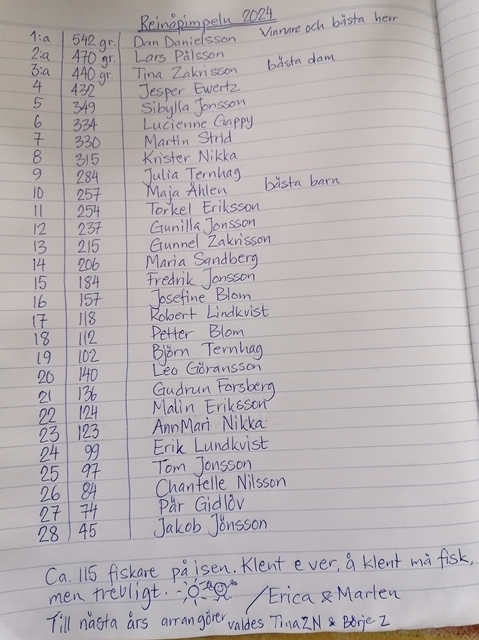 Reinåpimpeln 2024
1:a 542 gr. Dan Danielsson Vinnare och bästa herr
2:a 470 gr. Lars Pålsson
3:a 440 gr. Tina Zakrisson bästa dam
4 432 Jesper Ewertz
5 349 Sibylla Jonsson
6 334 Lucienne Gappy
7 330 Martin Strid
8 315 Krister Nikka
9 284 Julia Ternhag
10 257 Maja Åhlen bästa barn
11 254 Torkel Eriksson
12 237 Gunilla Jonsson
13 215 Gunnel Zakrisson
14 206 Maria Sandberg
15 184 Fredrik Jonsson
16 157 Josefine Blom
17 118 Robert Lindkvist
18 112 Petter Blom
19 102 Björn Ternhag
20 140 Leo Göransson
21 136 Gudrun Forsberg
22 124 Malin Eriksson
23 123 AnnMari Nikka
24 99 Erik Lundkvist
25 97 Tom Jonsson
26 84 Chantelle Nilsson
27 74 Pär Gidlöv
28 45 Jakob Jönsson
Ca. 115 fiskare på isen. Klent e ver, å klent må fisk,
men trevligt. /Erica & Marlen
Till nästa års arrangörer valdes Tina ZN & Börje Z